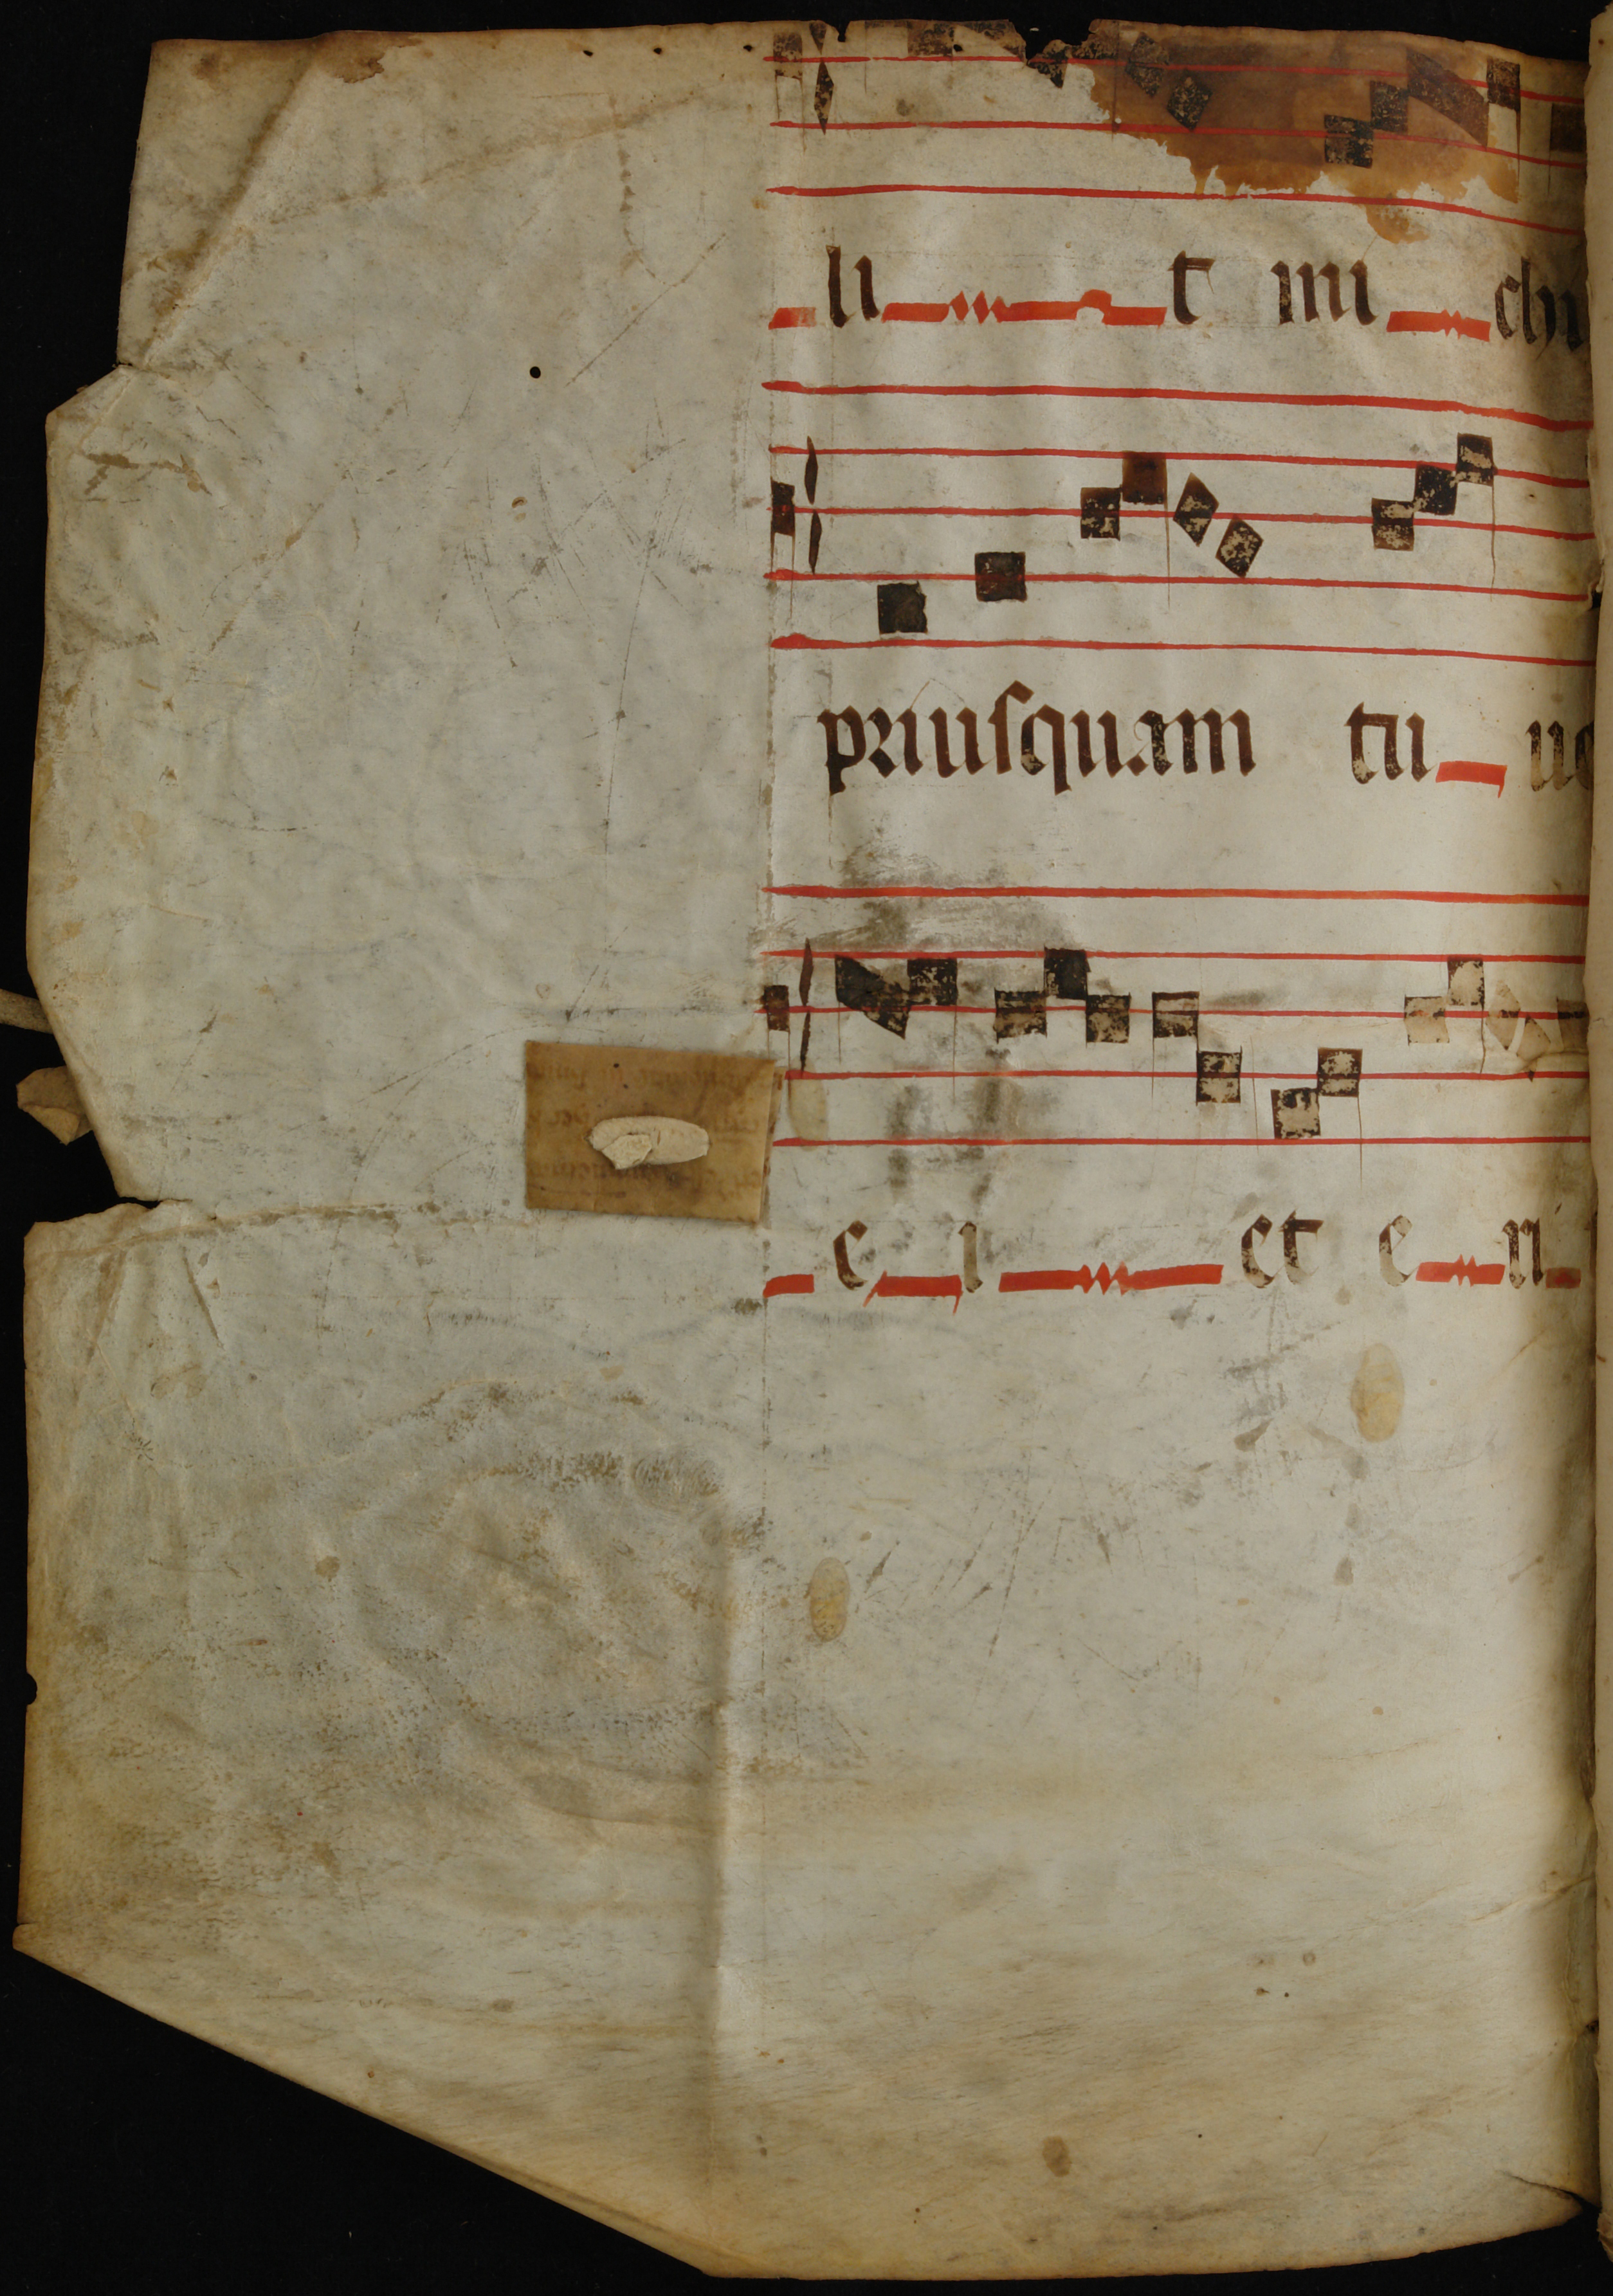 li t mi chi
priusquam tu ue
e i et e n